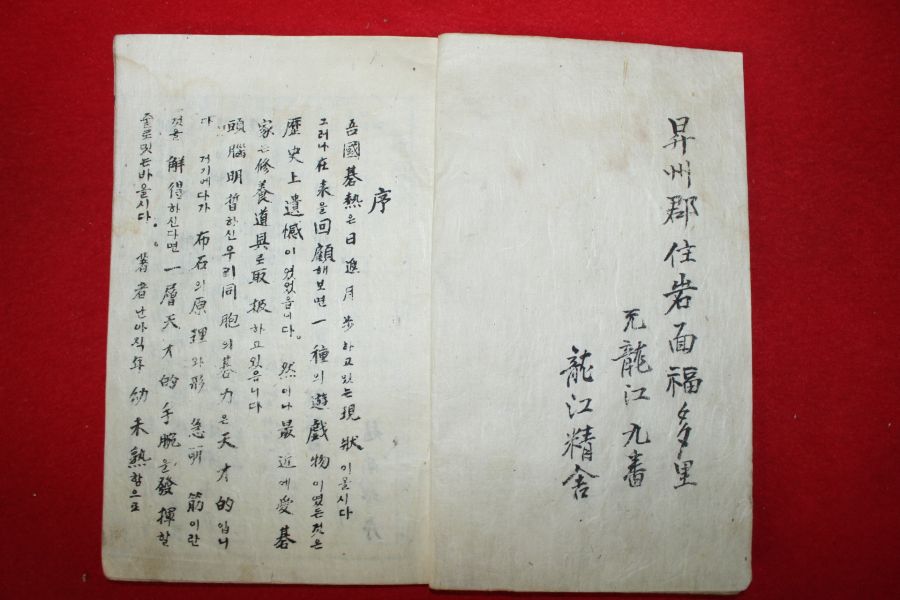 昇州郡住岩面福多里
元龍江九番
龍江精舍
序
吾國碁熱은日進月步하고있는現狀이올시다
그러나在來을回顧해보면一種의遊戱物이였든것은
歷史上遺憾이였었읍니다。然이나最近에愛碁
家는修養道具로取扱하고있읍니다
頭腦明哲하신우리同胞의碁力은天才的입니
다 거기에다가布石의原理와形 急所 筋이란
것을解得하신다면一層天才的手腕을發揮할
줄로밋는바올시다。。著者난아직年幼未熟함으로